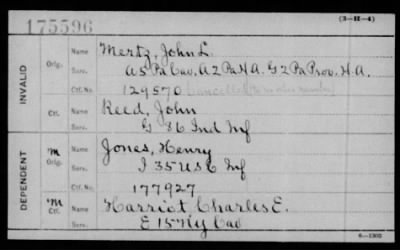 175596
(3-H-4)
INVALID
Orig.
Name Mertz, John L.
Serv. A 5 Pa Cav. A 2 Pa H A. G 2 Pa Prov. H. A.
Ctf. No. 129570
Ctf.
Name Reed, John
Serv. G 86 Ind Inf
DEPENDENT
m
Orig.
Name Jones, Henry
Serv. I 35 US C Inf
Ctf. No. 177927
m
Ctf.
Name Harriot Charles E.
Serv. E 15 N Y Cav